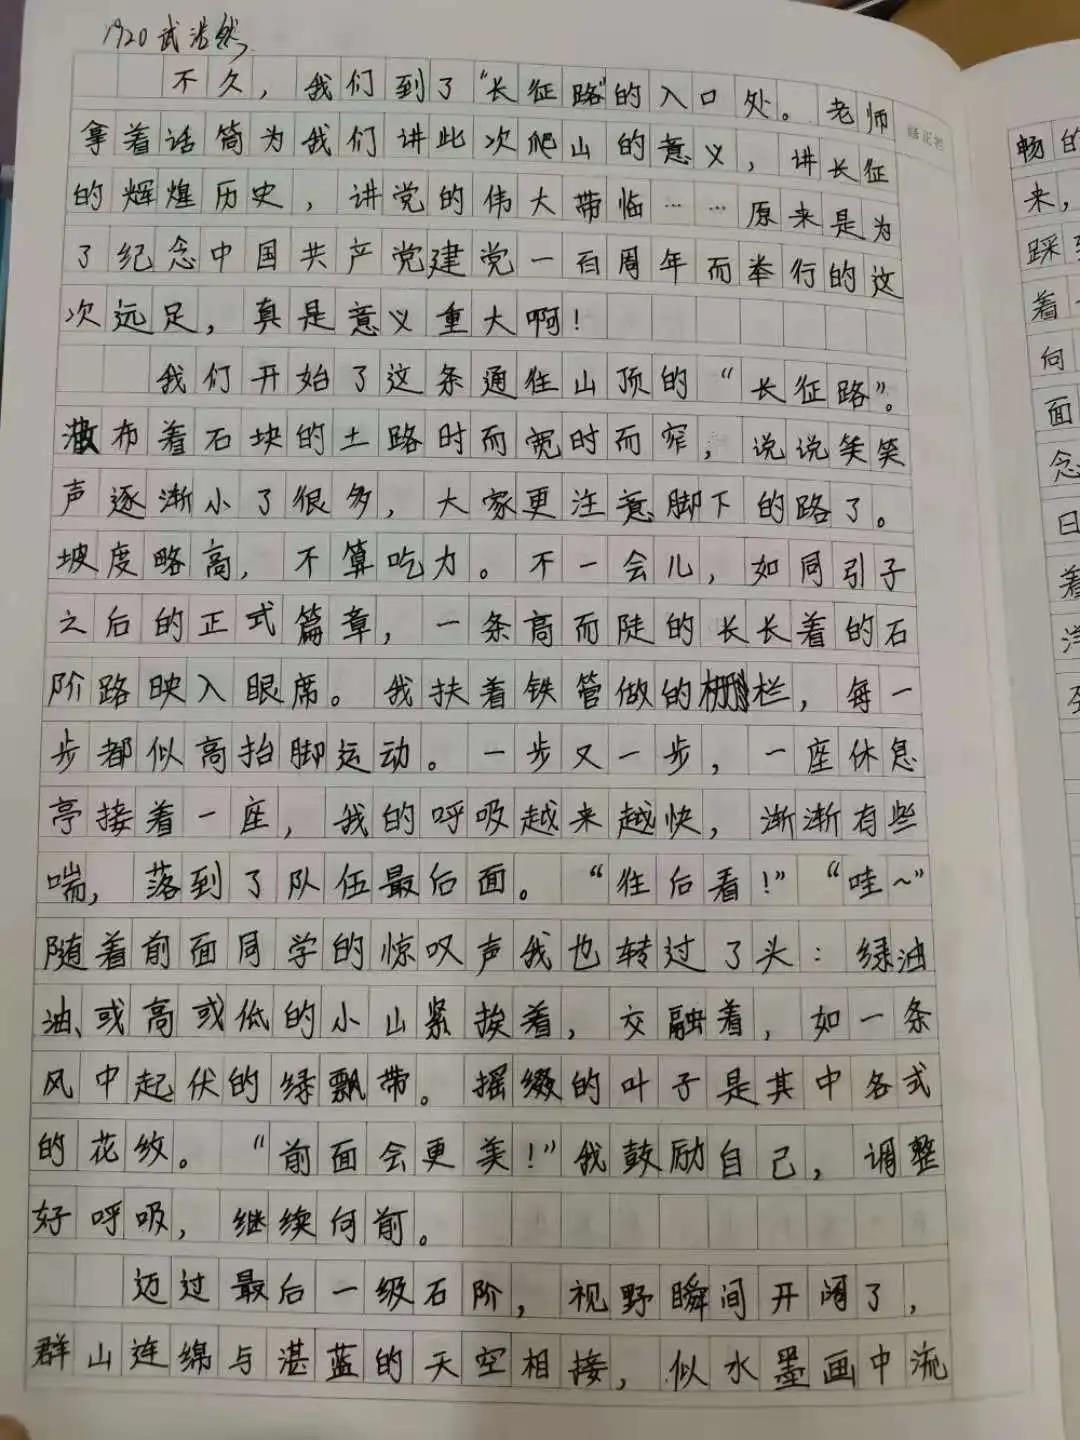 1920武浩然
不久，我们到了“长征路”的入口处。老师
拿着话筒为我们讲此次爬山的意义，讲长征
的辉煌历史，讲党的伟大带临……原来是为
了纪念中国共产党建党一百周年而举行的这
次远足，真是意义重大啊！
我们开始了这条通往山顶的“长征路”。
散布着石块的土路时而宽时而窄，说说笑笑
声逐渐小了很多，大家更注意脚下的路了。
坡度略高，不算吃力。不一会儿，如同引子
之后的正式篇章，一条高而陡的长长着的石
阶路映入眼席。我扶着铁管做的栅栏，每一
步都似高抬脚运动。一步又一步，一座休息
亭接着一座，我的呼吸越来越快，渐渐有些
喘，落到了队伍最后面。“往后看！”“哇~”
随着前面同学的惊叹声我也转过了头：绿油
油、或高或低的小山紧挨着，交融着，如一条
风中起伏的绿飘带。摇缀的叶子是其中各式
的花纹。“前面会更美！”我鼓励自己，调整
好呼吸，继续向前。
迈过最后一级石阶，视野瞬间开阔了，
群山连绵与湛蓝的天空相接，似水墨画中流
修正栏
畅的
来，
踩
着
向
面
念
日
着
洋